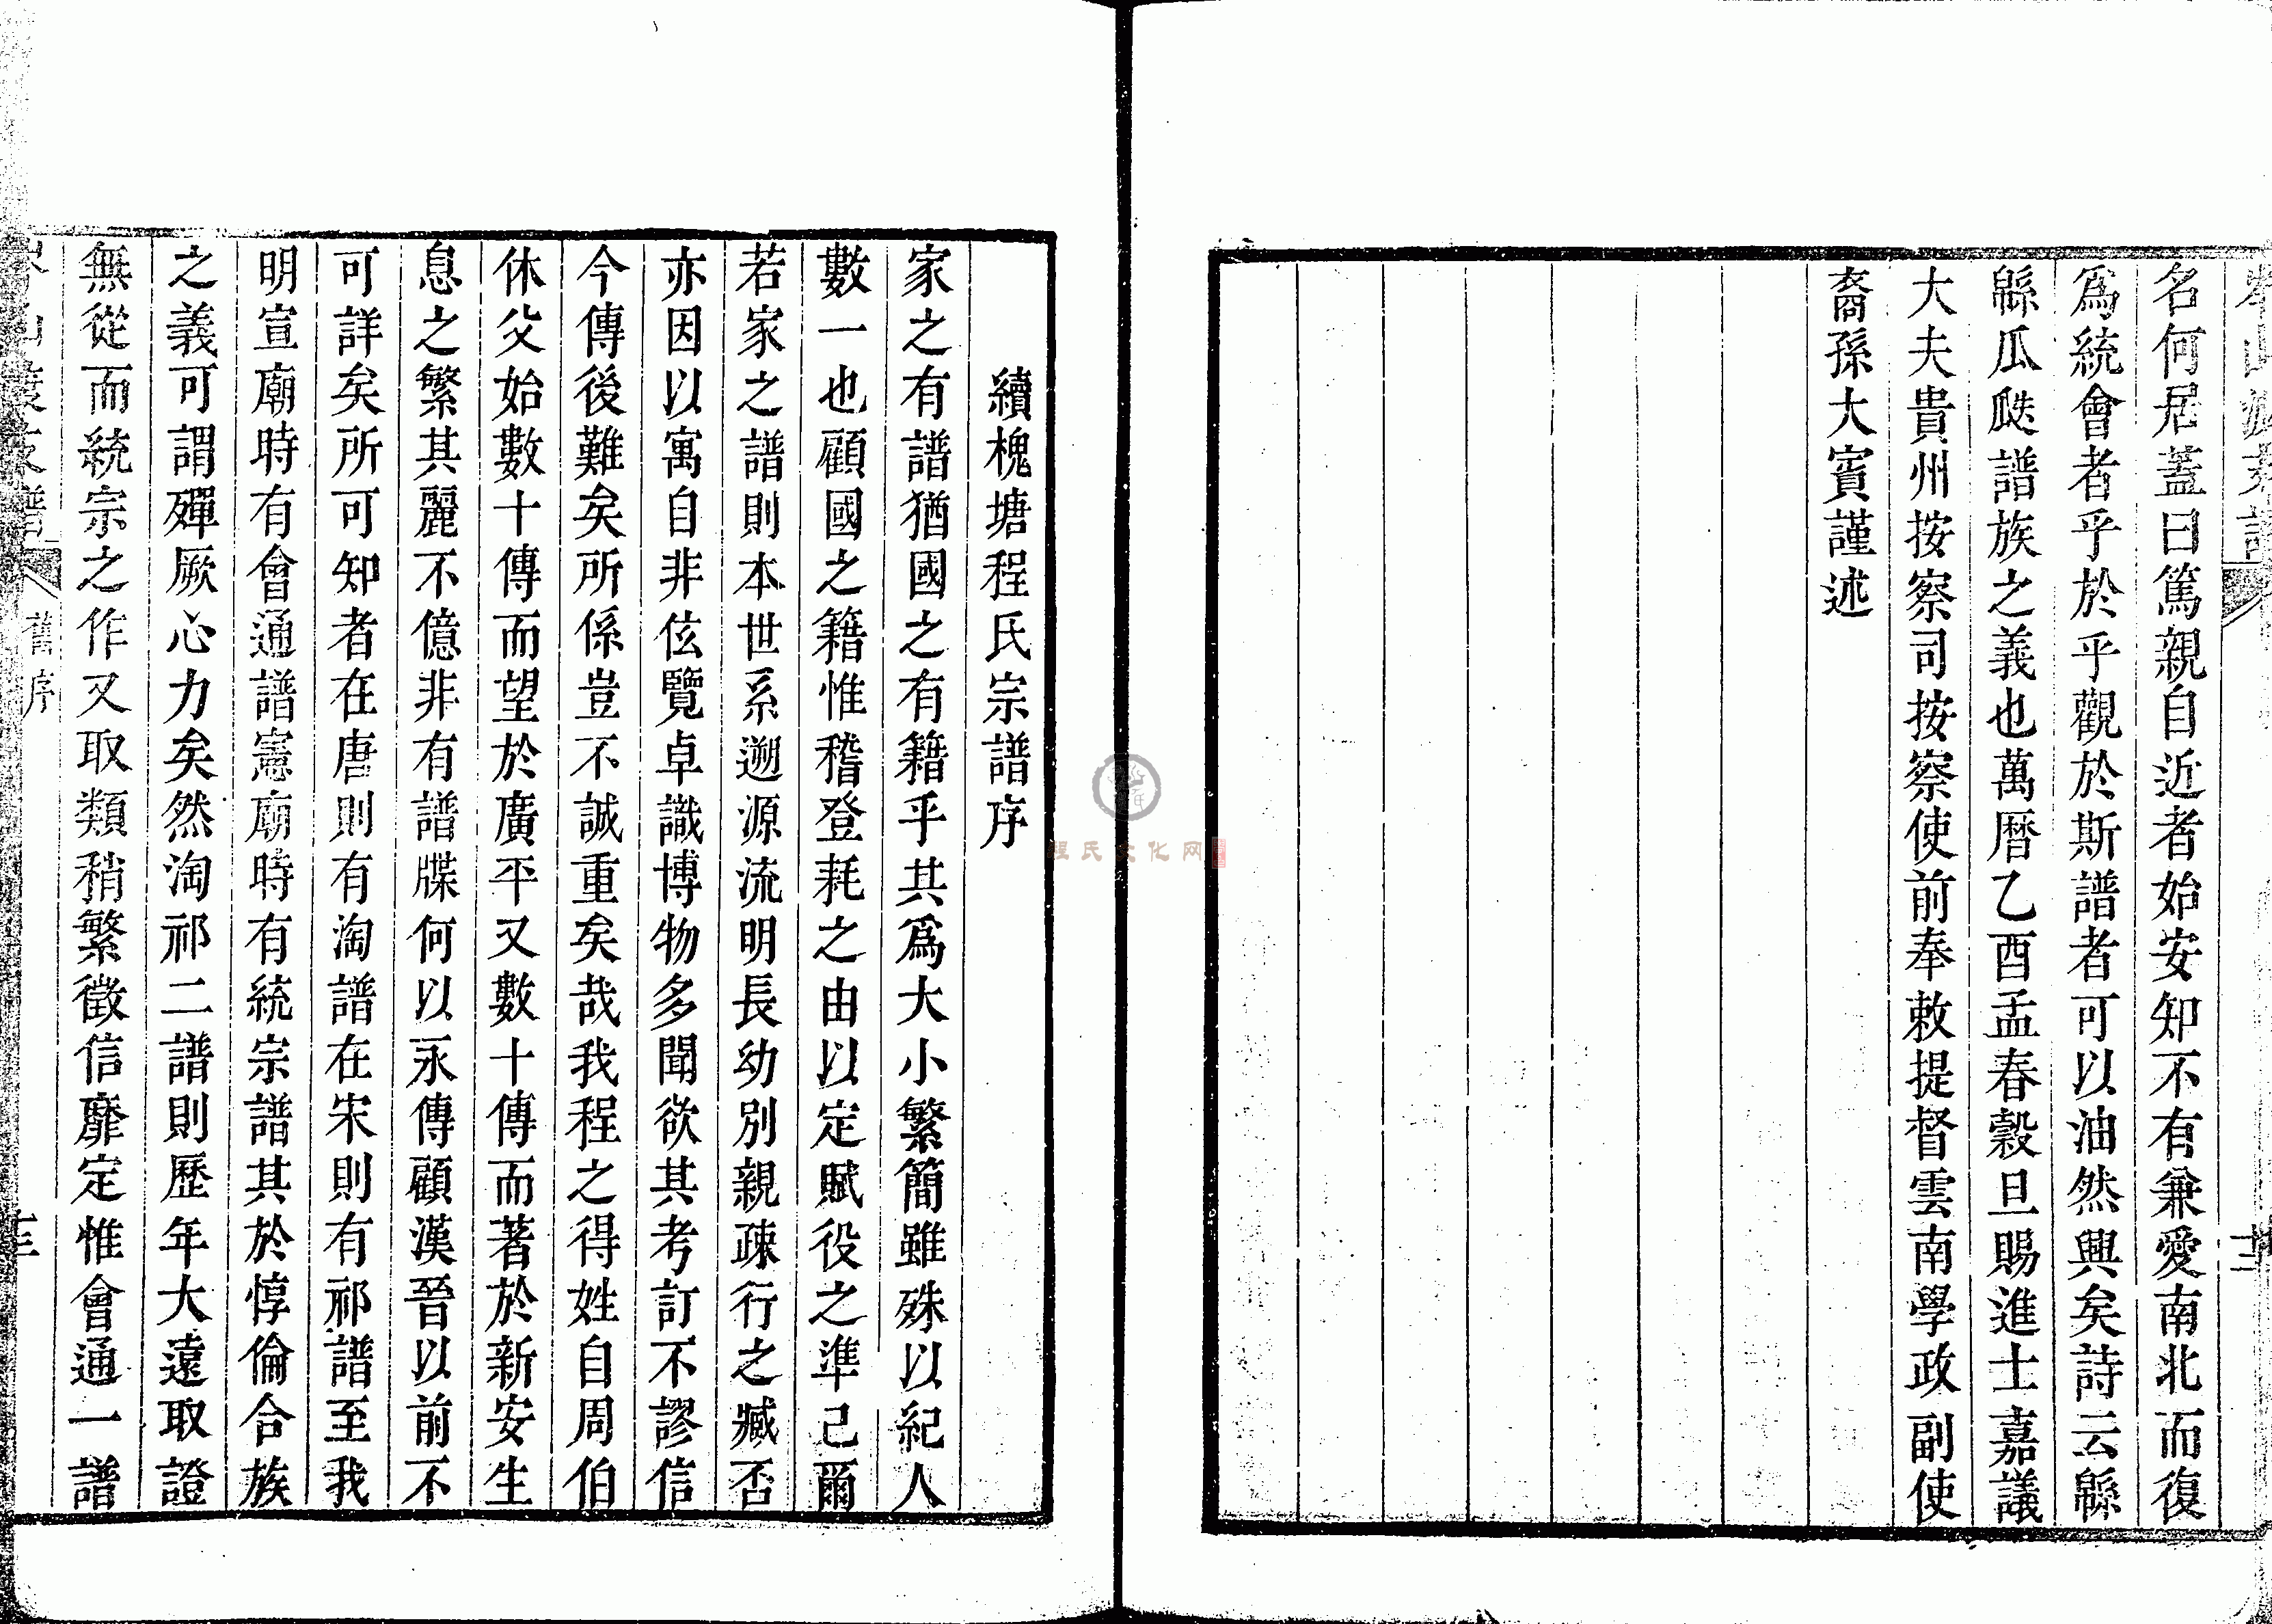 名何居蓋曰篤親自近者始安知不有兼愛南北而復
爲統會者乎於乎觀於斯譜者可以油然興矣詩云緜
緜瓜瓞譜族之義也萬曆乙酉孟春穀旦賜進士嘉議
大夫貴州按察司按察使前奉敕提督雲南學政副使
裔孫大賓謹述
續槐塘程氏宗譜序
家之有譜猶國之有籍乎其爲大小繁簡雖殊以紀人
數一也顧國之籍惟稽登耗之由以定賦役之準己爾
若家之譜則本世系遡源流明長幼別親疎行之臧否
亦因以寓自非伭覽卓識博物多聞欲其考訂不謬信
今傳後難矣所係豈不誠重矣哉我程之得姓自周伯
休父始數十傳而望於廣平又數十傳而著於新安生
息之繁其麗不億非有譜牒何以永傳顧漢晉以前不
可詳矣所可知者在唐則有淘譜在宋則有祁譜至我
明宣廟時有會通譜憲廟時有統宗譜其於惇倫合族
之義可謂殫厥心力矣然淘祁二譜則歷年大遠取證
無從而統宗之作又取類稍繁徵信靡定惟會通一譜
舊序
程氏文化网